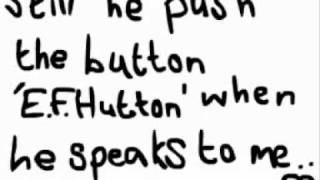 still he push
the button
'E.F.Hutton' when
he speaks to me..